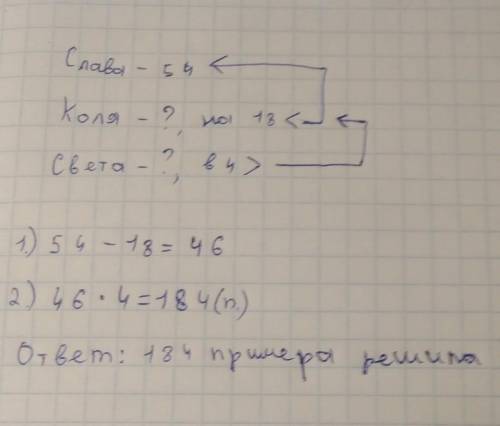 Слава - 54
Коля - ?, на 18 <
Света - ?, в 4 >
1.) 54 - 18 = 46
2) 46 · 4 = 184 (п.)
Ответ: 184 примера решила